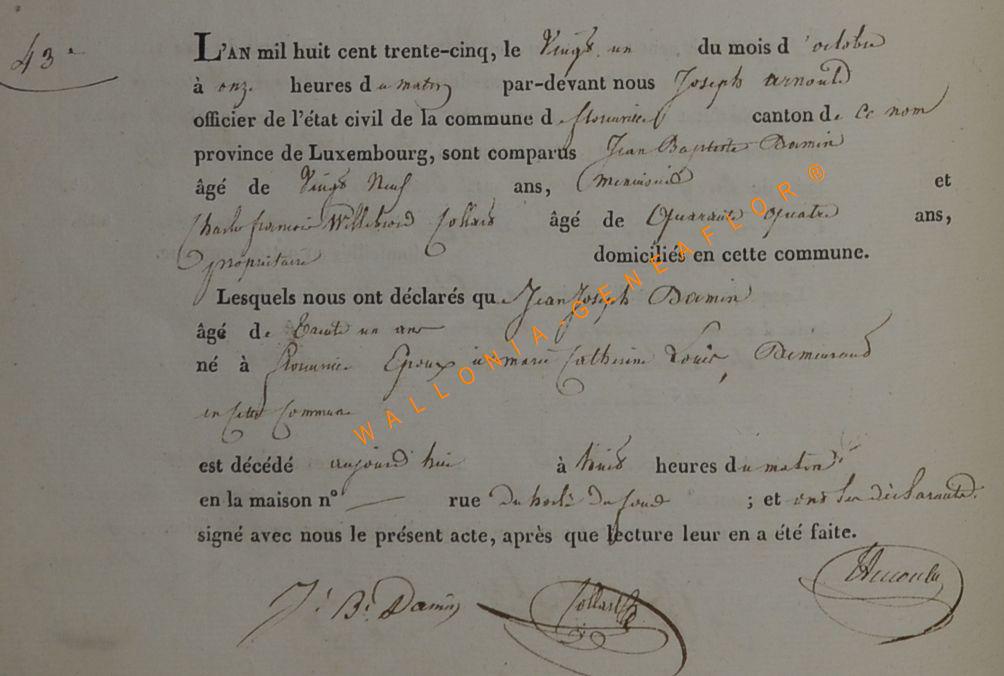 43
L'AN mil huit cent trente-cinq, le Vingt un du mois d'octobre
à onze heures du matin par-devant nous Joseph arnould
officier de l'état civil de la commune de florenville canton de ce nom
province de Luxembourg, sont comparus Jean Baptiste Damin
âgé de Vingt Neuf ans, Menuisier et
Charles francois Willebrord Collard âgé de Quarante quatre ans,
propriétaire domiciliés en cette commune.
Lesquels nous ont déclarés que Jean Joseph Damin
âgé de Trente un ans
né à florenville Epoux à marie Catherine Louis, Demeurant
en cette Commune
est décédé aujourd'hui à trois heures du matin
en la maison n° — rue du ; et ont les déclarants
signé avec nous le présent acte, après que lecture leur en a été faite.
J. Bt Damin Collard Arnould
WALLONIA-GENEAFLOR ®